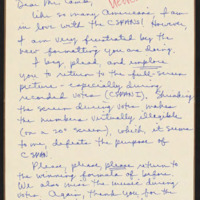 Dear Mr. Lamb,
Like so many Americans, I am
in love with the CSPANS! However,
I am very frustrated by the
new formatting you are doing.
I beg, plead, and implore
you to return to the full-screen
picture - especially during
recorded votes (CSPAN I). Shrinking
the screen during votes makes
the numbers virtually illegible
(on a 25" screen), which, it seems
to me, defeats the purpose of
CSPAN.
Please, please, please return to
the winning formula of before.
We also miss the music during
votes. Again, thank you for the